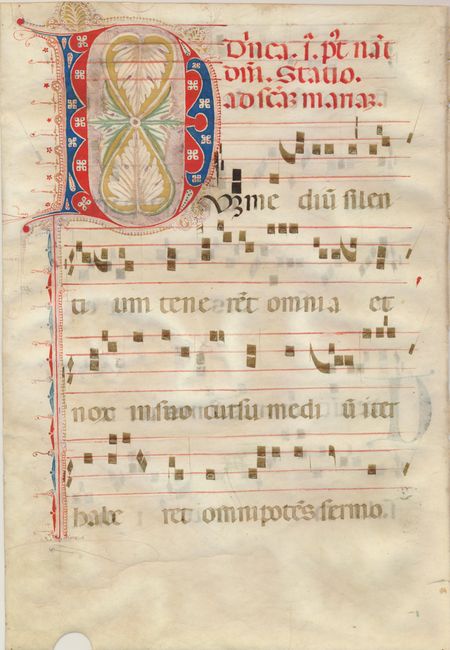 Dn̄ca. i. pꝰt nat̄
dn̄i. Statio.
ad sc̄aꝫ mariaꝫ.
DVꝫ me diū silen
ti um tene rēt omnia et
nox in suo cursu medi ū iter
habe ret omnipotēs sermo.